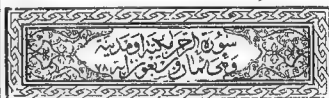 سورة الرحمن مكية او مدنية
وهي ثمان وسبعون اية